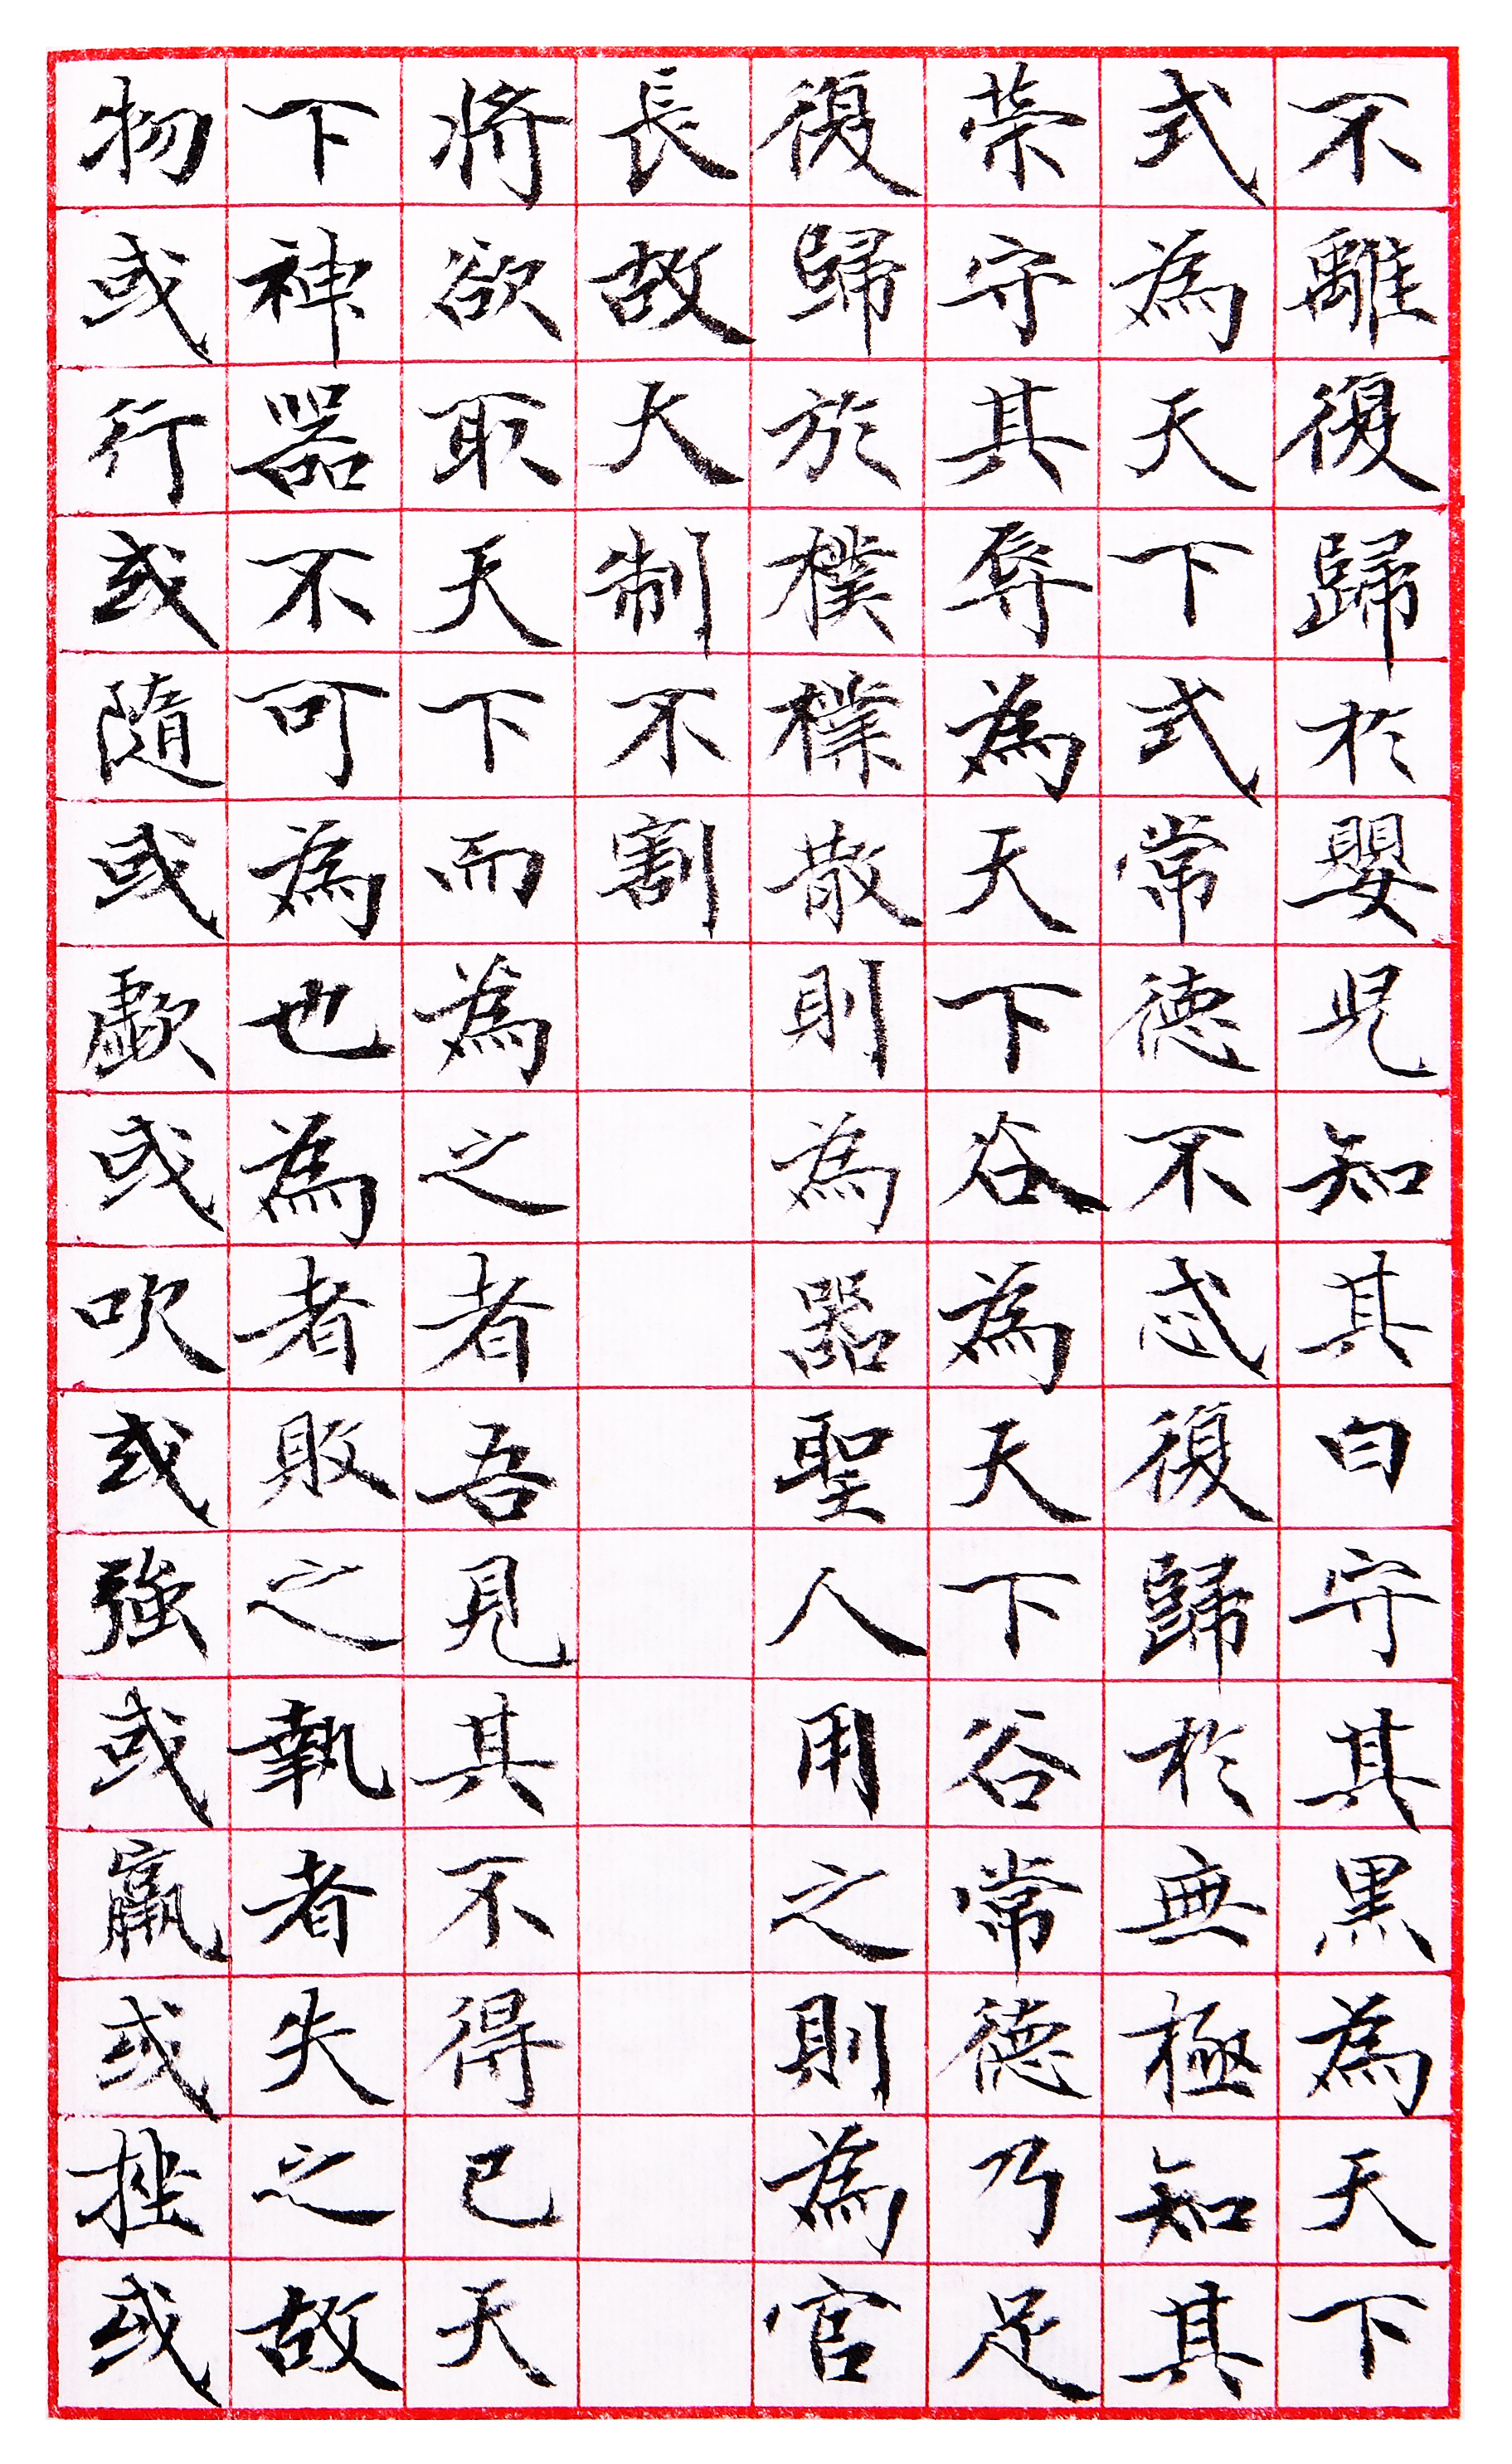 不離復歸於嬰兒知其白守其黑為天下
式為天下式常德不忒復歸於無極知其
榮守其辱為天下谷為天下谷常德乃足
復歸於樸樸散則為器聖人用之則為官
長故大制不割
將欲取天下而為之者吾見其不得已天
下神器不可為也為者敗之執者失之故
物或行或隨或歔或吹或強或羸或挫或